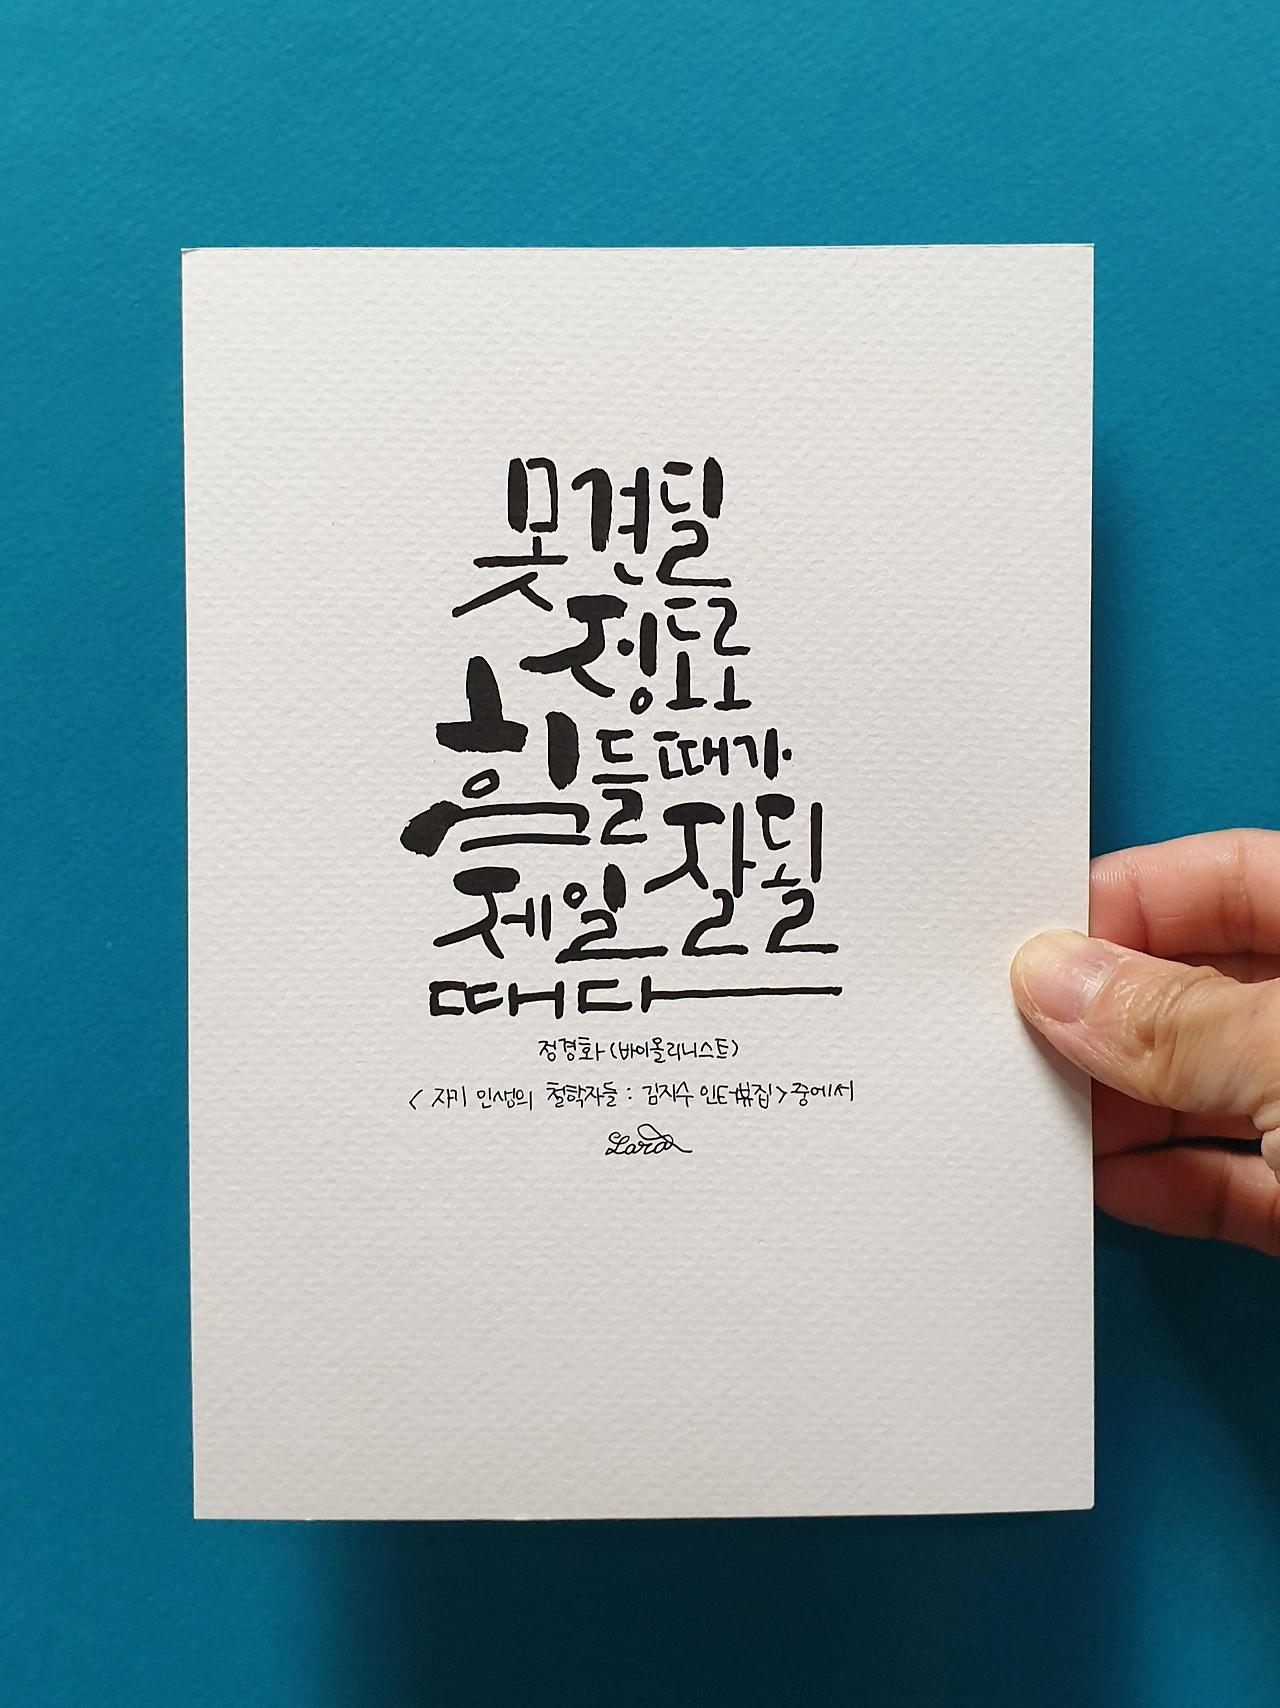 못견딜
정도로
힘들때가
제일 잘될
때다
정경화 (바이올리니스트)
< 자기 인생의 철학자들 : 김지수 인터뷰집 > 중에서
Lara